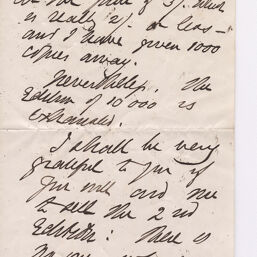 at the price of 3/. which
is really 2/- or less -
and I have given 1000
copies away.
Nevertheless, the
Edition of 10 000 is
exhausted.
I shall be very
grateful to you if
you will
to sell the 2nd
Edition: There is